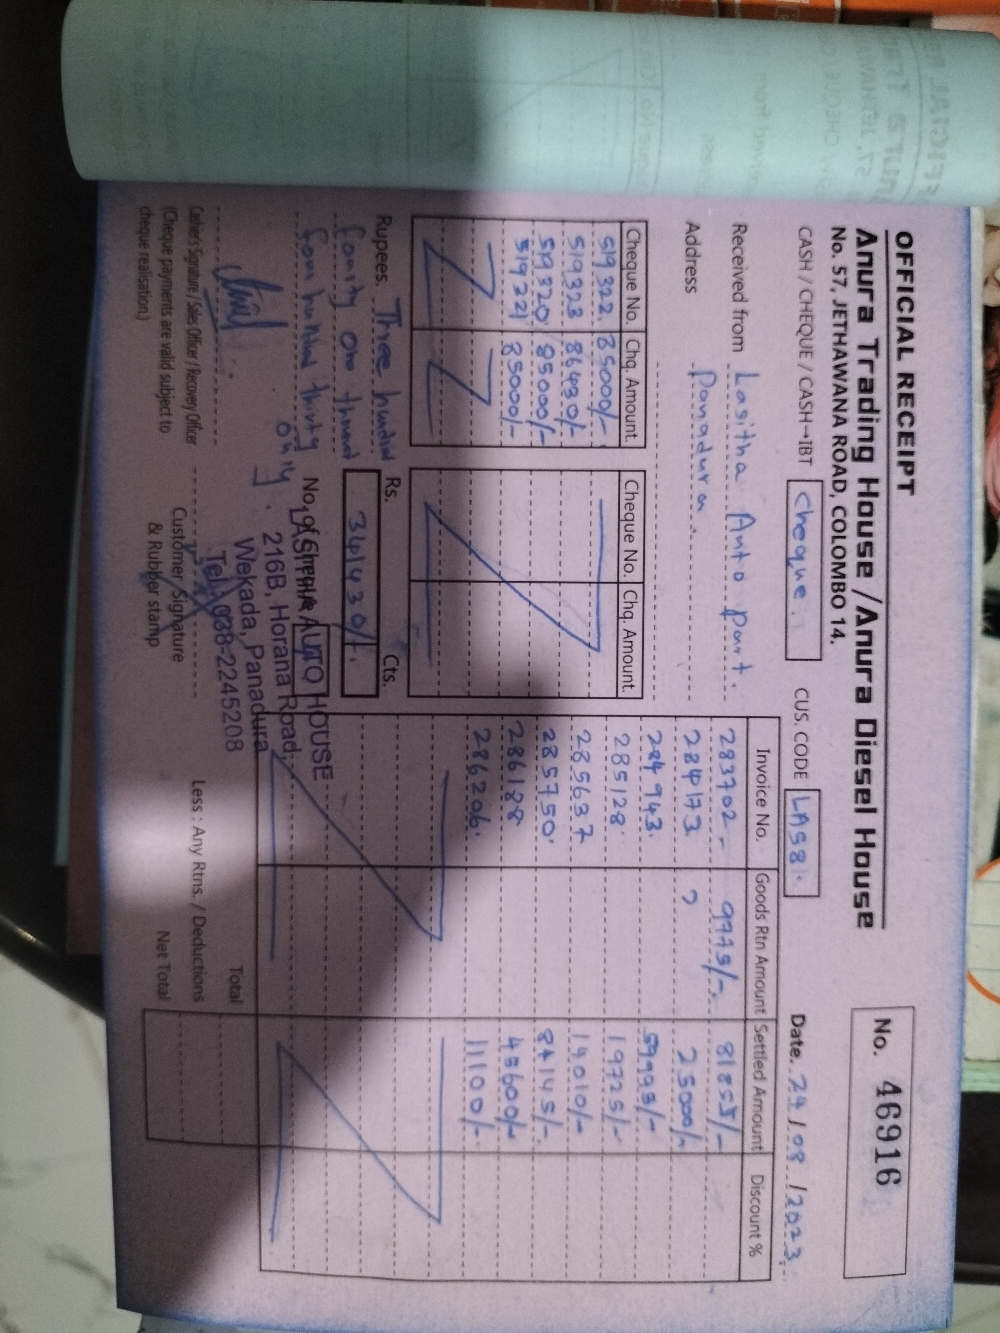 OFFICIAL RECEIPT
Anura Trading House / Anura Diesel House
No. 57, JETHAWANA ROAD, COLOMBO 14.
No. 46916
CASH / CHEQUE / CASH→IBT Cheque. CUS. CODE LAS81. Date. 24/08/2023
Received from Lasitha Auto part.
Address Panadura.
Cheque No. Chq. Amount.
519322 85000/-
519323 86430/-
519320 85000/-
519321 85000/-
Cheque No. Chq. Amount.
Invoice No. Goods Rtn Amount Settled Amount Discount %
283702 9775/- 81855/-
284173 25000/-
284943. 59993/-
285128 19725/-
285637 19010/-
285750. 84145/-
286188 45600/-
286206. 11100/-
Rupees. Three hundred
fourty one thousand
four hundred thirty
only.
Rs. Cts.
341430/-
No. of Cheque
LASITHA AUTO HOUSE
216B, Horana Road,
Wekada, Panadura.
Tel: 038-2245208
Cashier's Signature / Sales Officer / Recovery Officer
(Cheque payments are valid subject to
cheque realisation.)
Customer Signature
& Rubber stamp
Total
Less : Any Rtns. / Deductions
Net Total